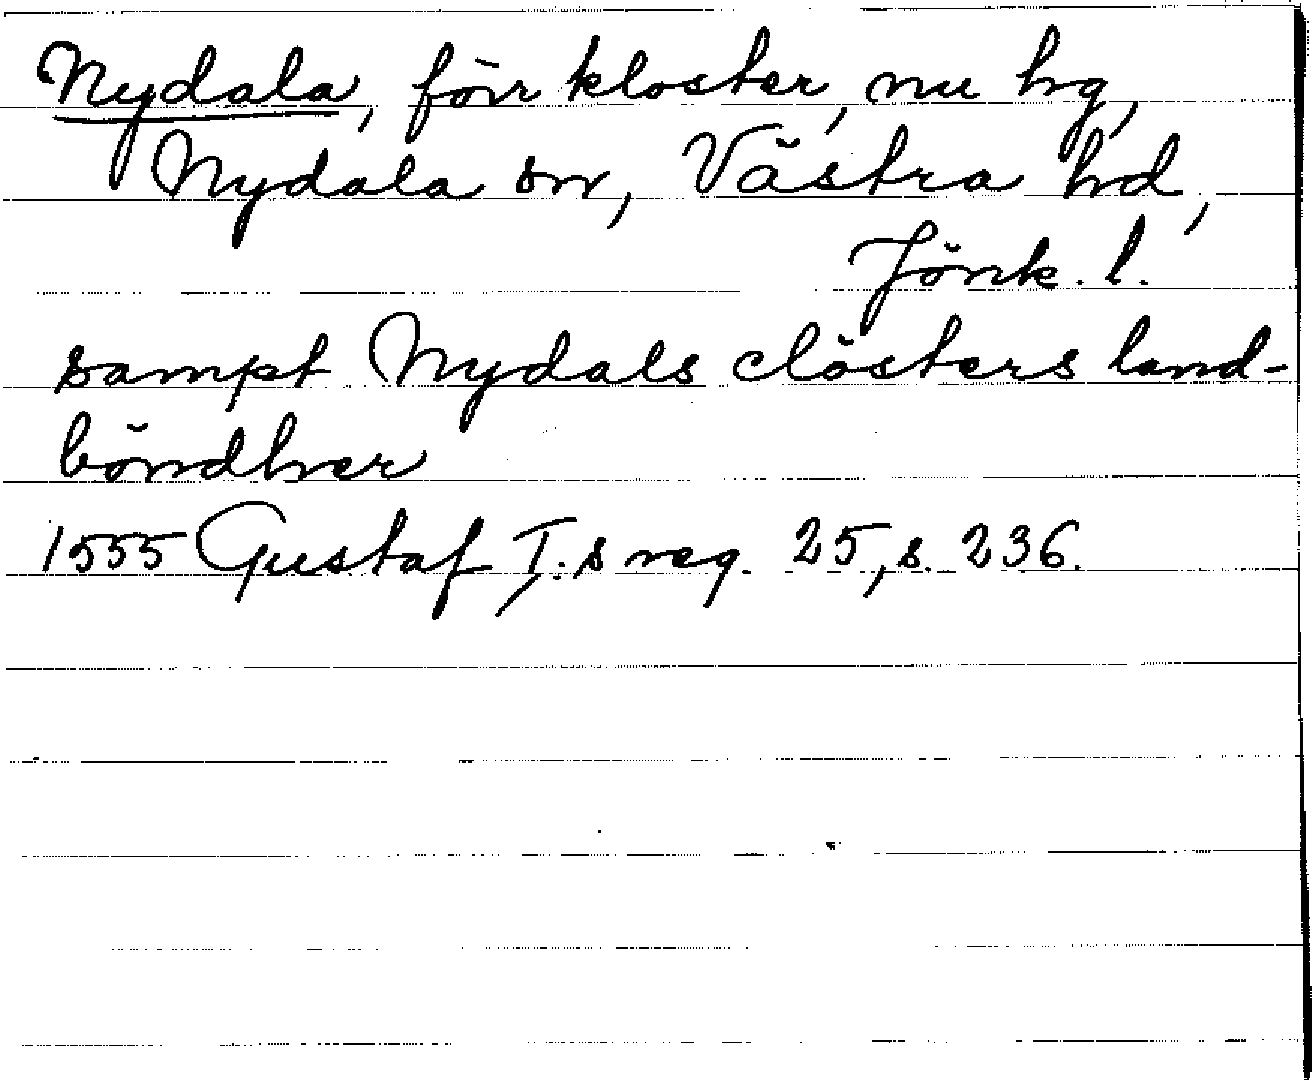 Nydala, förr kloster, nu hg,
Nydala sn, Västra hd,
Jönk. l.
sampt Nydals clösters land-
böndher
1555 Gustaf I.s reg. 25, s. 236.